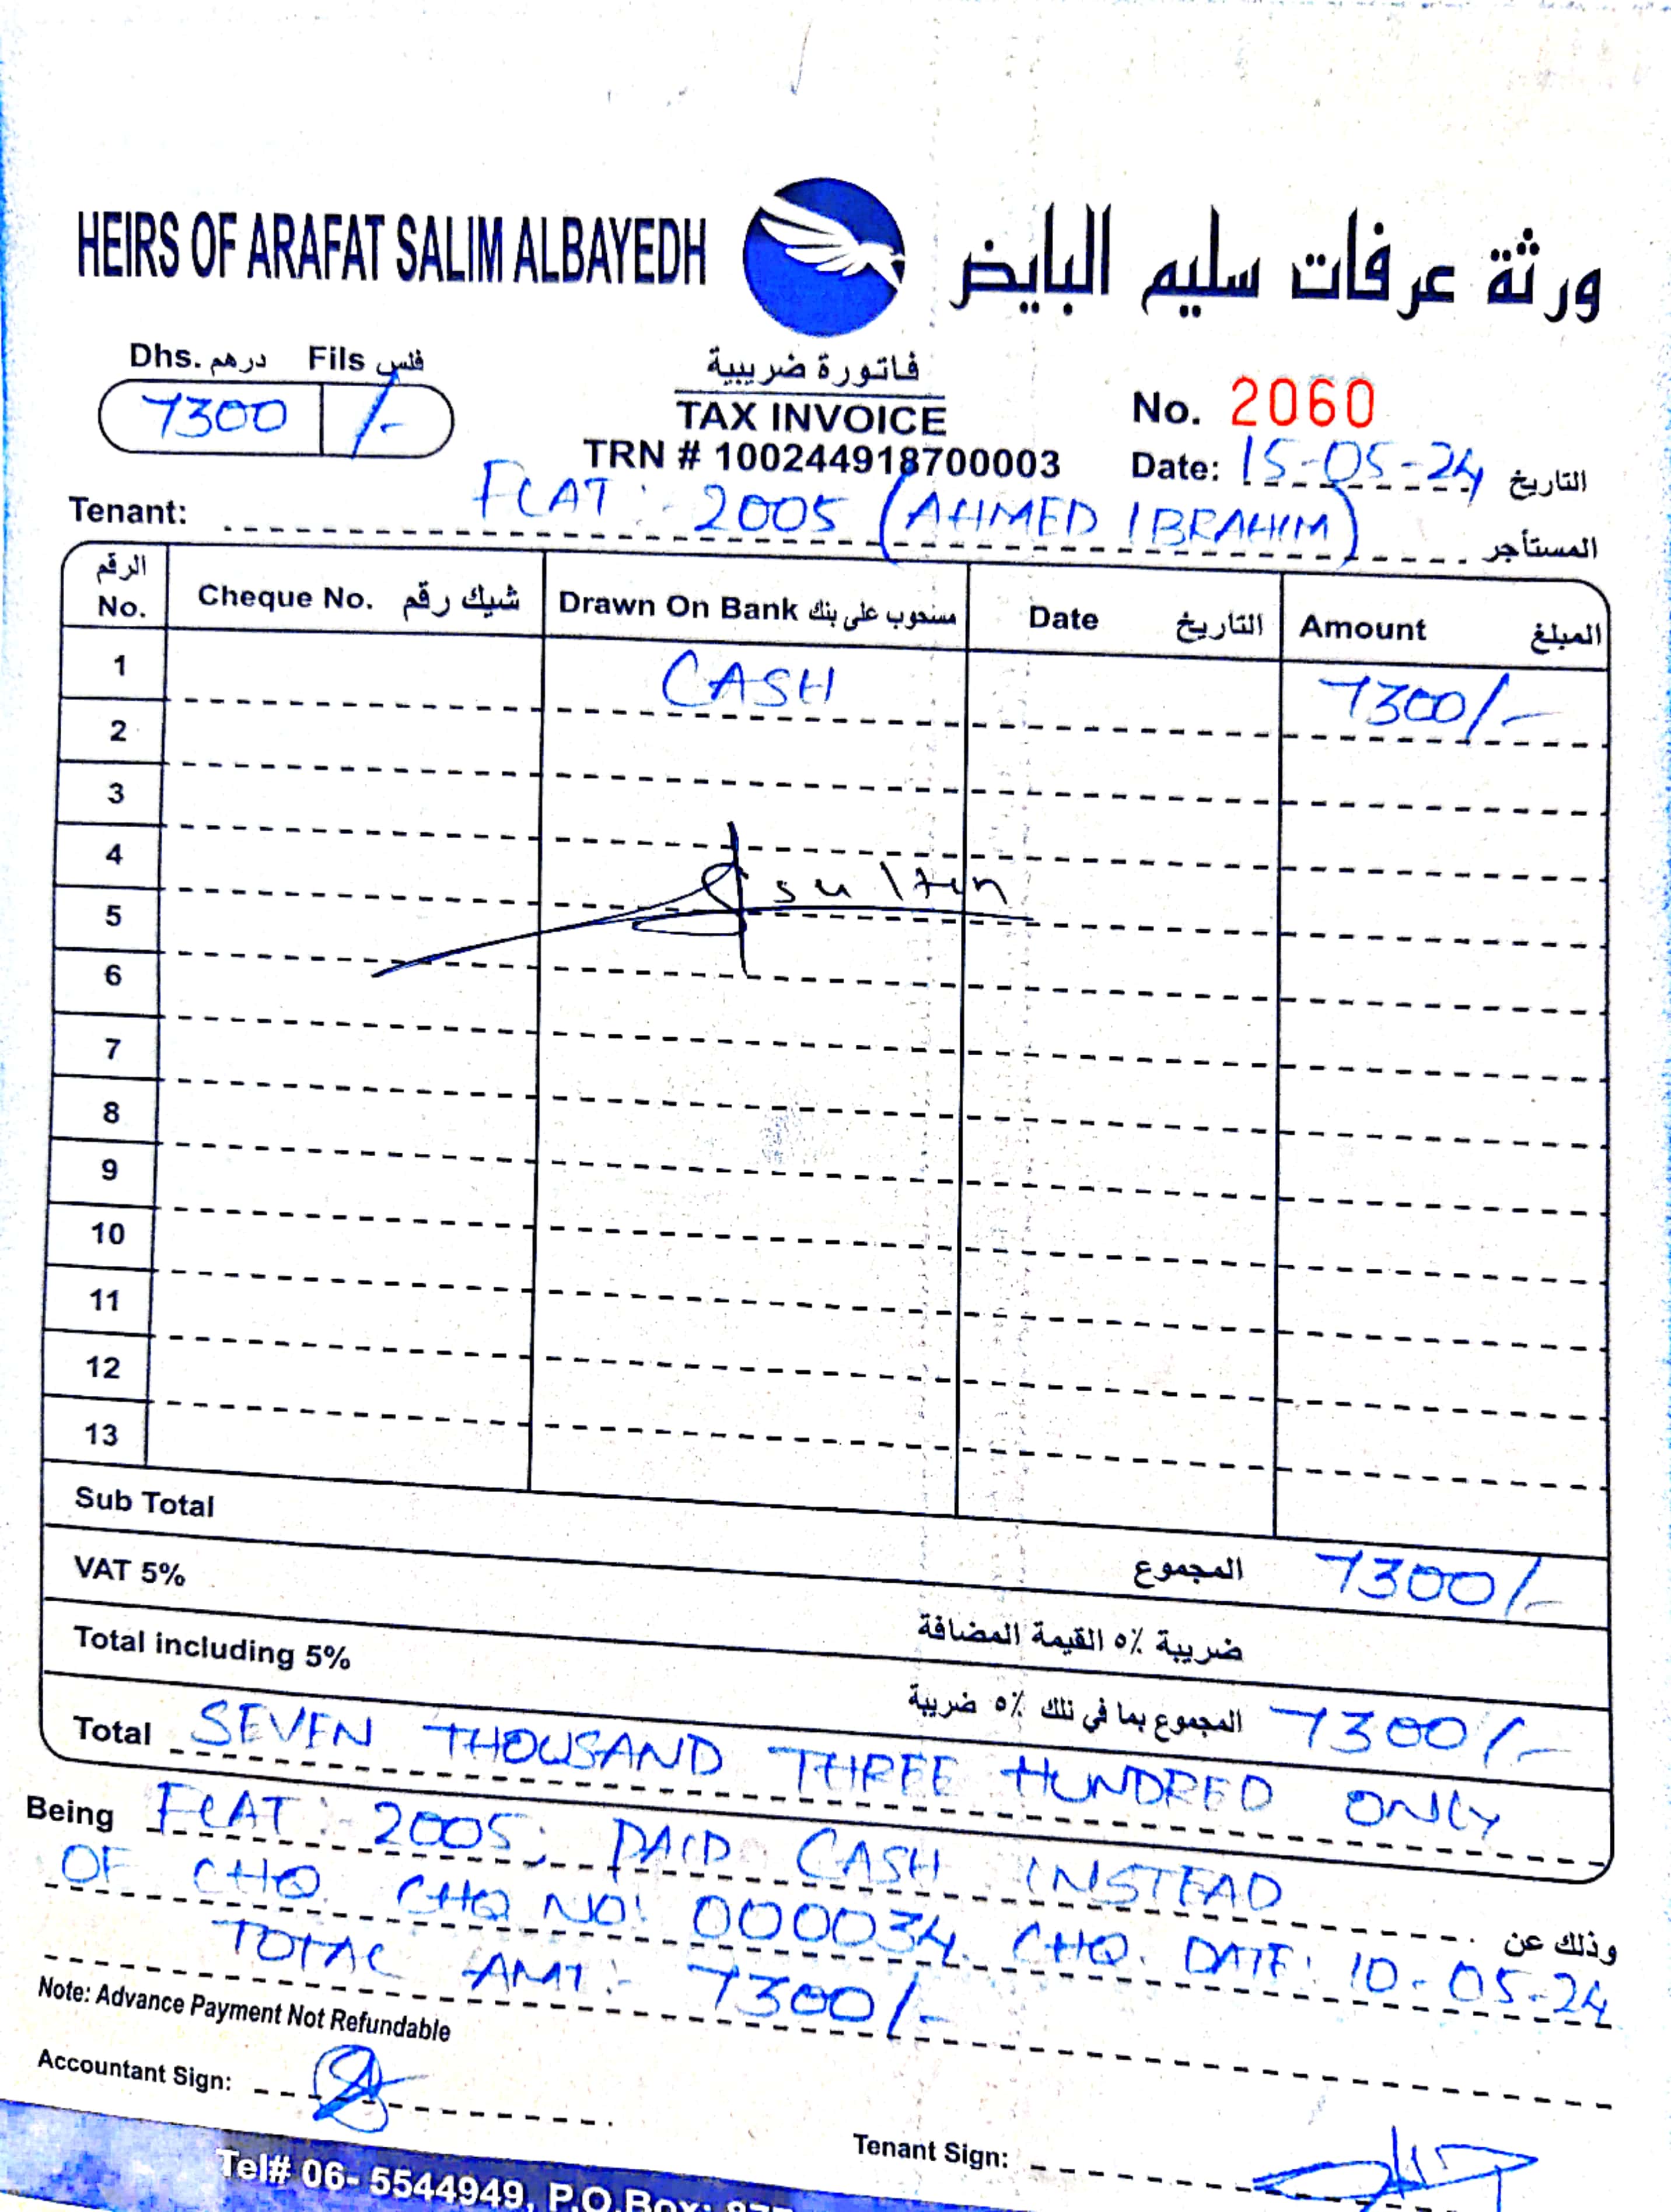 HEIRS OF ARAFAT SALIM ALBAYEDH ورثة عرفات سليم البايض
Dhs. درهم Fils فلس
7300 /-
فاتورة ضريبية
TAX INVOICE
TRN # 100244918700003
No. 2060
Date: 15-05-24 التاريخ
Tenant: FLAT: 2005 (AHMED IBRAHIM) المستأجر
الرقم No. Cheque No. شيك رقم Drawn On Bank مسحوب على بنك Date التاريخ Amount المبلغ
1 CASH 7300/-
2
3
4
sultan
5
6
7
8
9
10
11
12
13
Sub Total المجموع 7300/-
VAT 5% ضريبة ٥٪ القيمة المضافة
Total including 5% المجموع بما في ذلك ٥٪ ضريبة 7300/-
Total SEVEN THOUSAND THREE HUNDRED ONLY
Being FLAT: 2005; PAID CASH INSTEAD وذلك عن
OF CHQ. CHQ NO: 000034. CHQ. DATE: 10-05-24
TOTAL AMT:- 7300/-
Note: Advance Payment Not Refundable
Accountant Sign:
Tenant Sign:
Tel# 06- 5544949, P.O.Box: